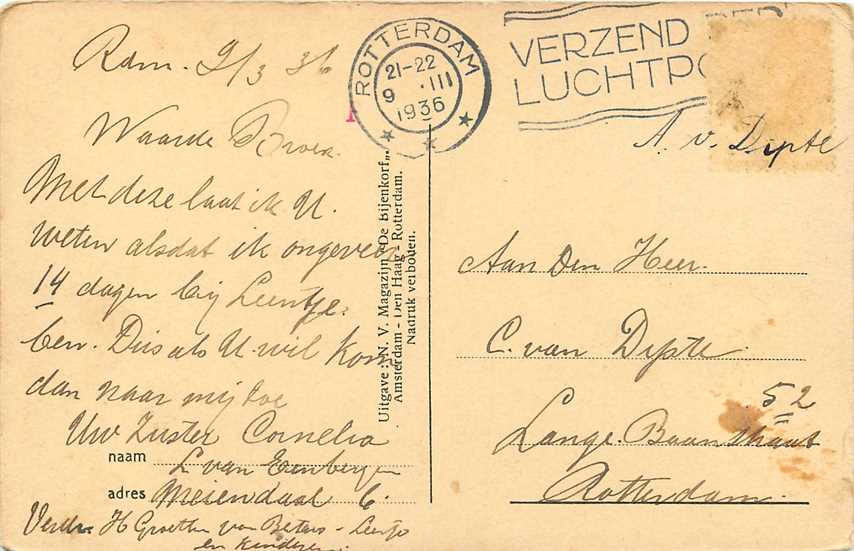 Rdm. 9/3 36
Waarde Broer.
Met deze laat ik U.
weten alsdat ik ongeveer
14 dagen bij Leentje.
ben. Dus als U wil kom
dan naar mij toe
Uw Zuster Cornelia
naam L van
adres Meiendaal 6.
Verder H Groeten van - Leentje
en kinderen
Uitgave: N. V. Magazijn „De Bijenkorf”,
Amsterdam - Den Haag - Rotterdam.
Nadruk verboden.
ROTTERDAM
21-22
9 .III
1936
VERZEND
LUCHTPO
A. v.
Aan Den Heer.
C. van
52
Lange. Baanstraat
Rotterdam.